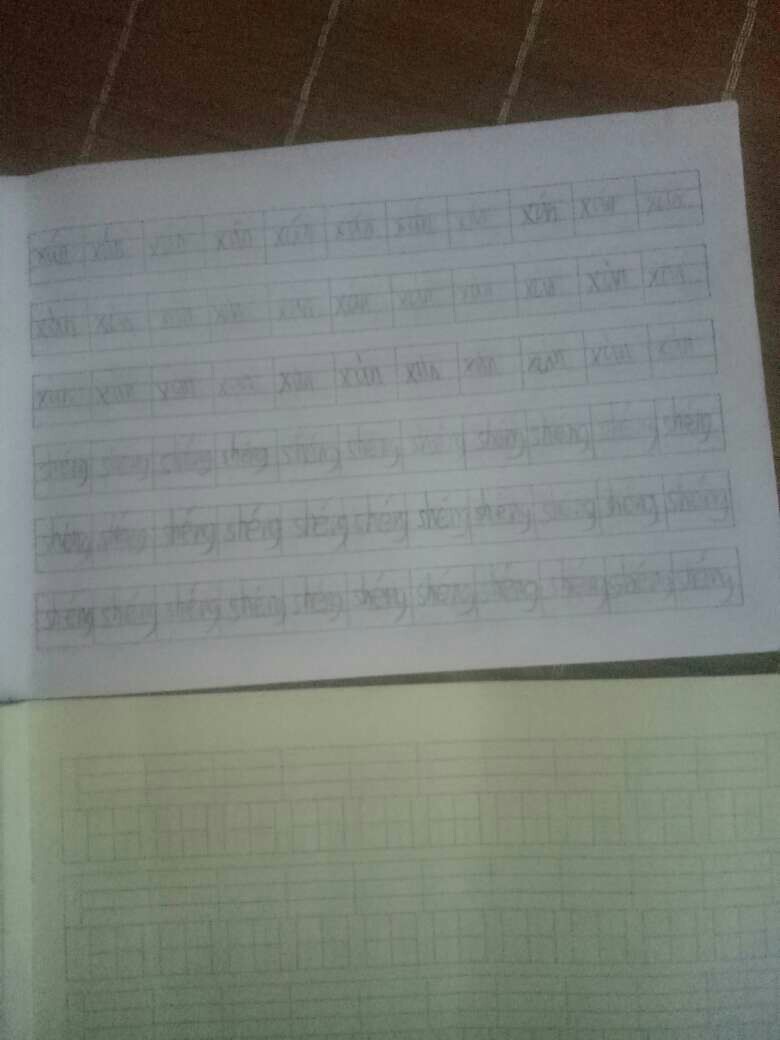 xún xún xún xún xún xún xún xún xún xún xún
xún xún xún xún xún xún xún xún xún xún xún
xún xún xún xún xún xún xún xún xún xún xún
shéng shéng shéng shéng shéng shéng shéng shéng shéng shéng shéng
shéng shéng shéng shéng shéng shéng shéng shéng shéng shéng shéng
shéng shéng shéng shéng shéng shéng shéng shéng shéng shéng shéng